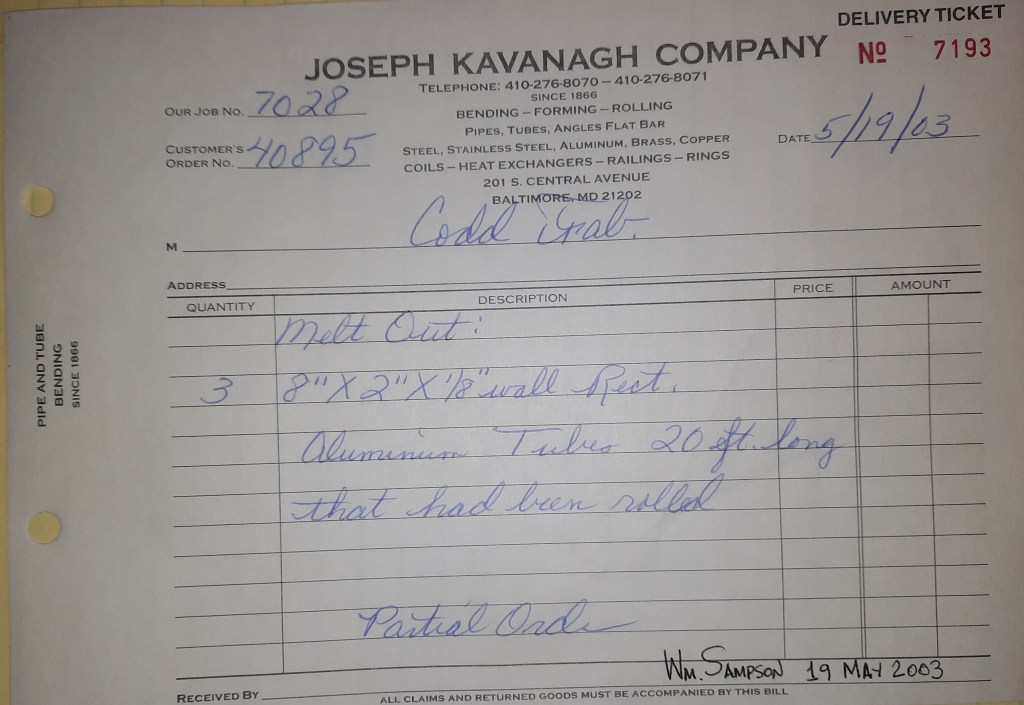 DELIVERY TICKET
JOSEPH KAVANAGH COMPANY
No 7193
TELEPHONE: 410-276-8070 – 410-276-8071
SINCE 1866
OUR JOB NO. 7028
BENDING – FORMING – ROLLING
PIPES, TUBES, ANGLES FLAT BAR
CUSTOMER'S ORDER NO. 40895
STEEL, STAINLESS STEEL, ALUMINUM, BRASS, COPPER
DATE 5/19/03
COILS – HEAT EXCHANGERS – RAILINGS – RINGS
201 S. CENTRAL AVENUE
BALTIMORE, MD 21202
M Codd Fab.
ADDRESS
QUANTITY DESCRIPTION PRICE AMOUNT
Melt Out:
3 8" X 2" X 1/8" wall Rect.
Aluminum Tubes 20 ft. long
that had been rolled
Partial Order
PIPE AND TUBE
BENDING
SINCE 1866
WM. SAMPSON 19 MAY 2003
RECEIVED BY
ALL CLAIMS AND RETURNED GOODS MUST BE ACCOMPANIED BY THIS BILL